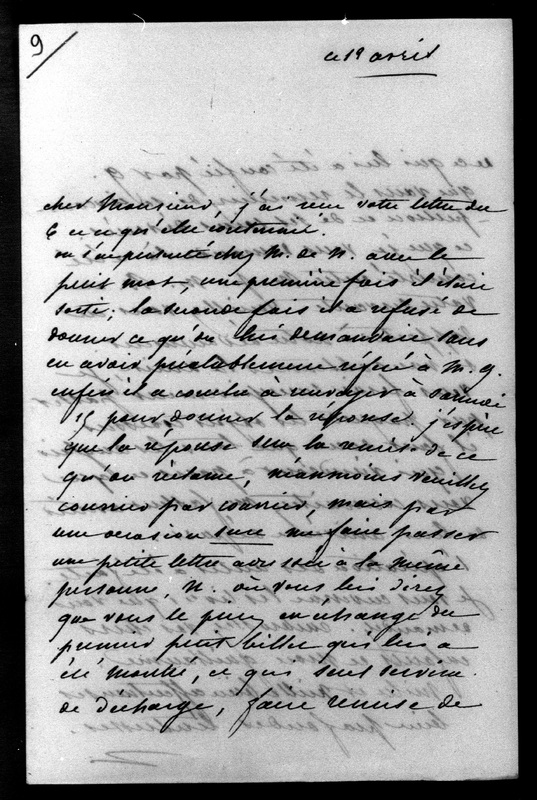 9
ce 19 avril
cher Monsieur, j'ai reçu votre lettre du
6 et ce qu'elle contenait.
on s'est présenté chez M. de N. avec le
petit mot, une première fois il était
sorti; la seconde fois il a refusé de
donner ce qu'on lui demandait sans
en avoir préalablement référé à M. g.
enfin il a consenti à renvoyer à samedi
15 pour donner la réponse. j'espère
que la réponse sera la remise de ce
qu'on réclame, néanmoins veuillez
courrier par courrier, mais par
une occasion sure me faire passer
une petite lettre adressée à la même
personne, N. où vous lui direz
que vous le priez en échange du
premier petit billet qui lui a
été montré, ce qui sera servira
de décharge, faire remise de